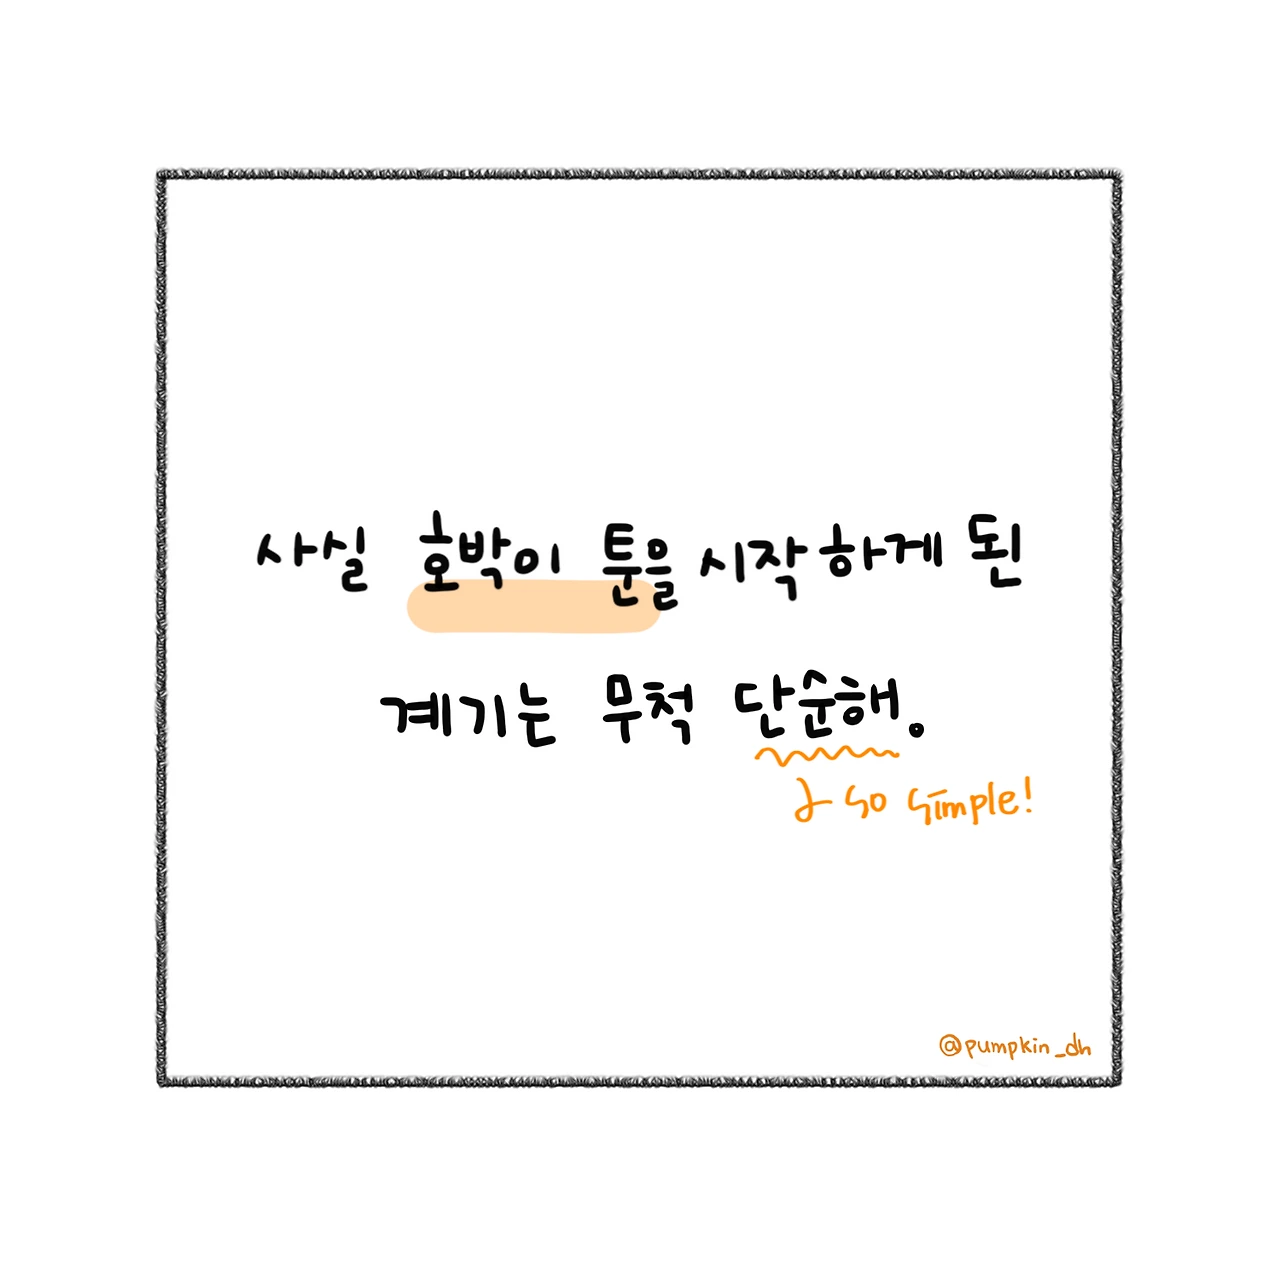 사실 호박이 툰을 시작하게 된
계기는 무척 단순해.
so simple!
@pumpkin_dh